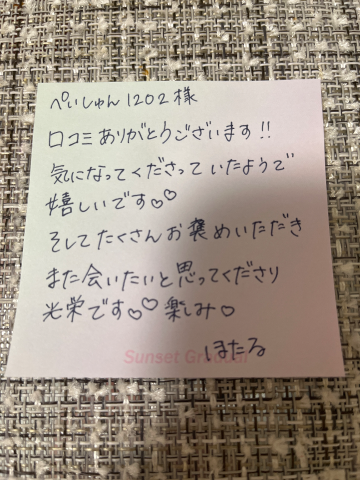 ぺいしゅん1202様
口コミありがとうございます!!
気になってくださっていたようで
嬉しいです♡♡
そしてたくさんお褒めいただき
また会いたいと思ってくださり
光栄です♡♡楽しみ♡
ほたる
Sunset